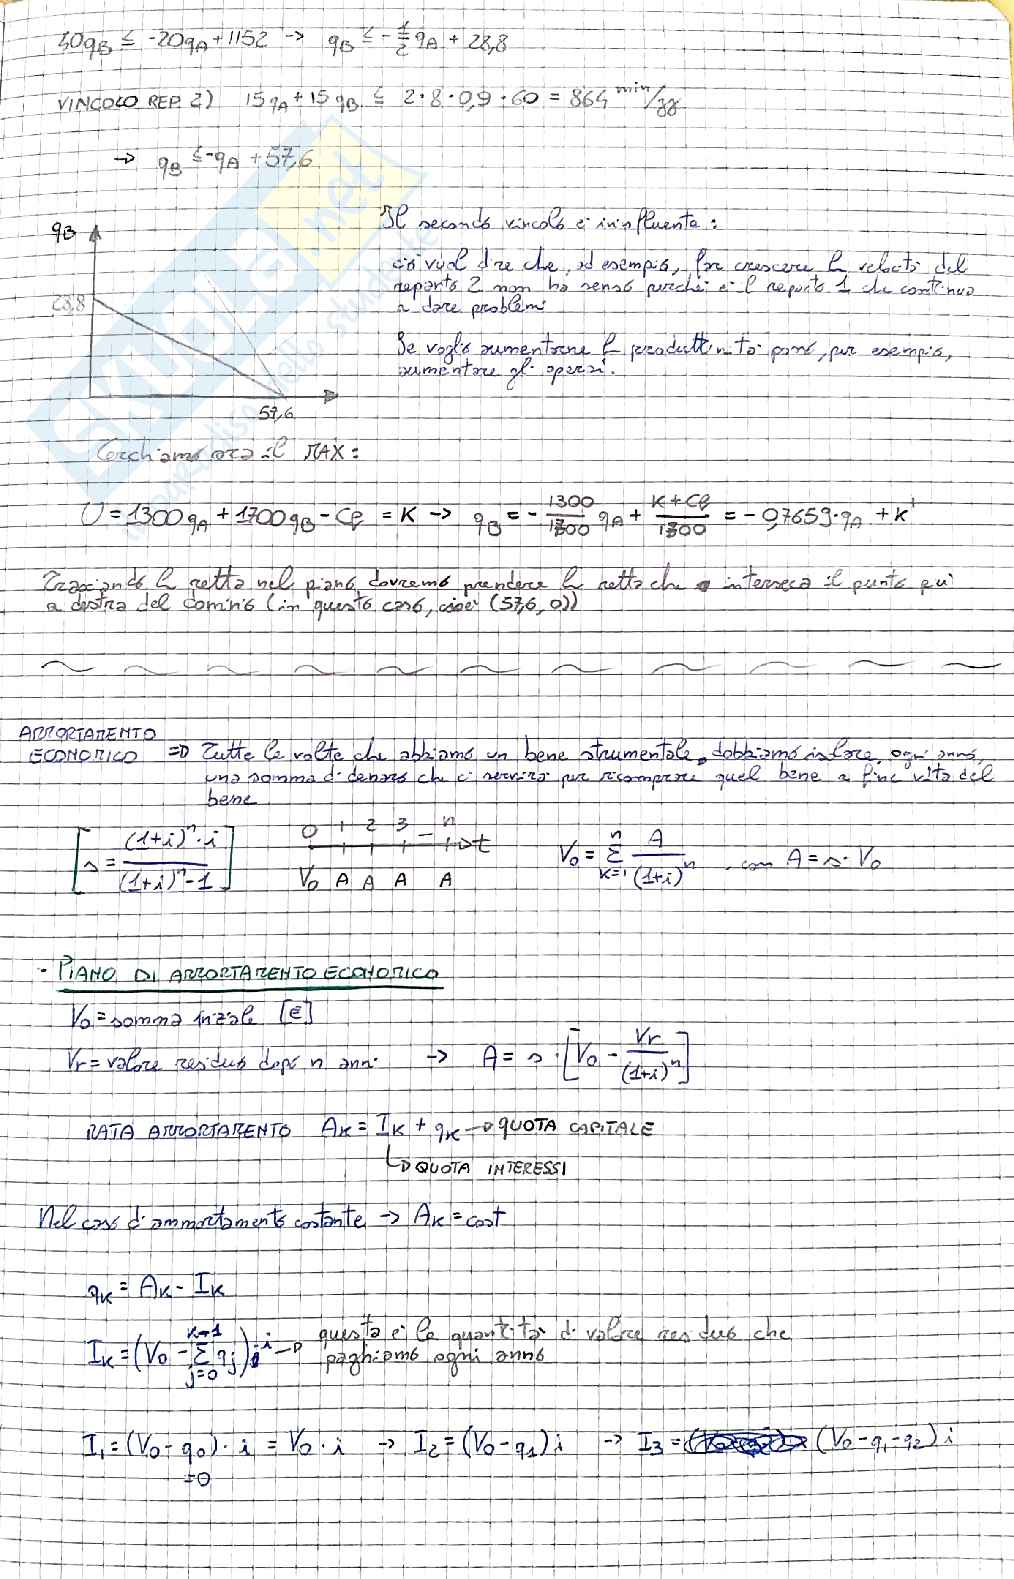 40qB ≤ -20qA + 1152 → qB ≤ -1/2 qA + 28,8
VINCOLO REP. 2) 15qA + 15qB ≤ 2·8·0,9·60 = 864 min/gg
→ qB ≤ -qA + 57,6
qB
28,8
57,6
Il secondo vincolo è ininfluente:
ciò vuol dire che, ad esempio, far crescere la velocità del
reparto 2 non ha senso perché è il reparto 1 che continua
a dare problemi
Se voglio aumentarne la produttività posso, per esempio,
aumentare gli operai.
Cerchiamo ora il MAX:
U = 1300qA + 1700qB - Cf = K → qB = - 1300/1700 qA + K+Cf/1700 = -0,7659·qA + K'
Tracciando la retta nel piano, dovremo prendere la retta che interseca il punto più
a destra del dominio (in questo caso, cioè (57,6, 0))
AMMORTAMENTO
ECONOMICO ⇒ Tutte le volte che abbiamo un bene strumentale, dobbiamo isolare, ogni anno,
una somma di denaro che ci servirà per ricomprare quel bene a fine vita del
bene
[s = (1+i)^n·i / (1+i)^n-1]
0 1 2 3 – n t
V0 A A A A
V0 = Σ k=1 n A/(1+i)^n , con A = s·V0
· PIANO DI AMMORTAMENTO ECONOMICO
V0 = somma iniziale [€]
Vr = valore residuo dopo n anni → A = s·[V0 - Vr/(1+i)^n]
RATA AMMORTAMENTO AK = IK + qK → QUOTA CAPITALE
→ QUOTA INTERESSI
Nel caso d'ammortamento costante → AK = cost
qK = AK - IK
IK = (V0 - Σ j=0 K-1 qj)·i → questa è la quantità di valore residuo che
paghiamo ogni anno
I1 = (V0 - q0)·i = V0·i → I2 = (V0 - q1)i → I3 = (V0 - q1 - q2)i
=0